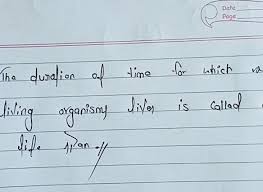 Date
Page
The duration of time for which
living organisms lives is called
life span.